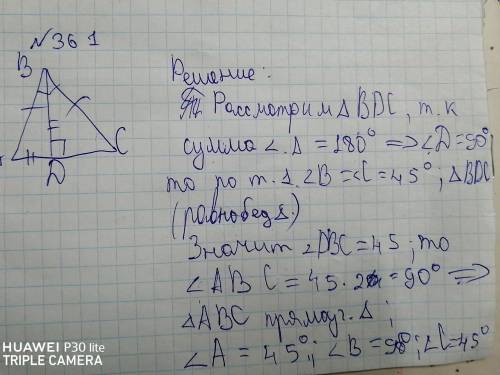 №361
B
C
D
Решение:
Рассмотрим △BDC, т.к
сумма ∠ △ = 180° => ∠D=90°
то по т. △. ∠B=∠C=45°; △BDC
(равнобед △.)
Значит ∠DBC=45; то
∠ABC=45·2=90° =>
△ABC прямоуг. △;
∠A=45°; ∠B=90°; ∠C=45°
HUAWEI P30 lite
TRIPLE CAMERA